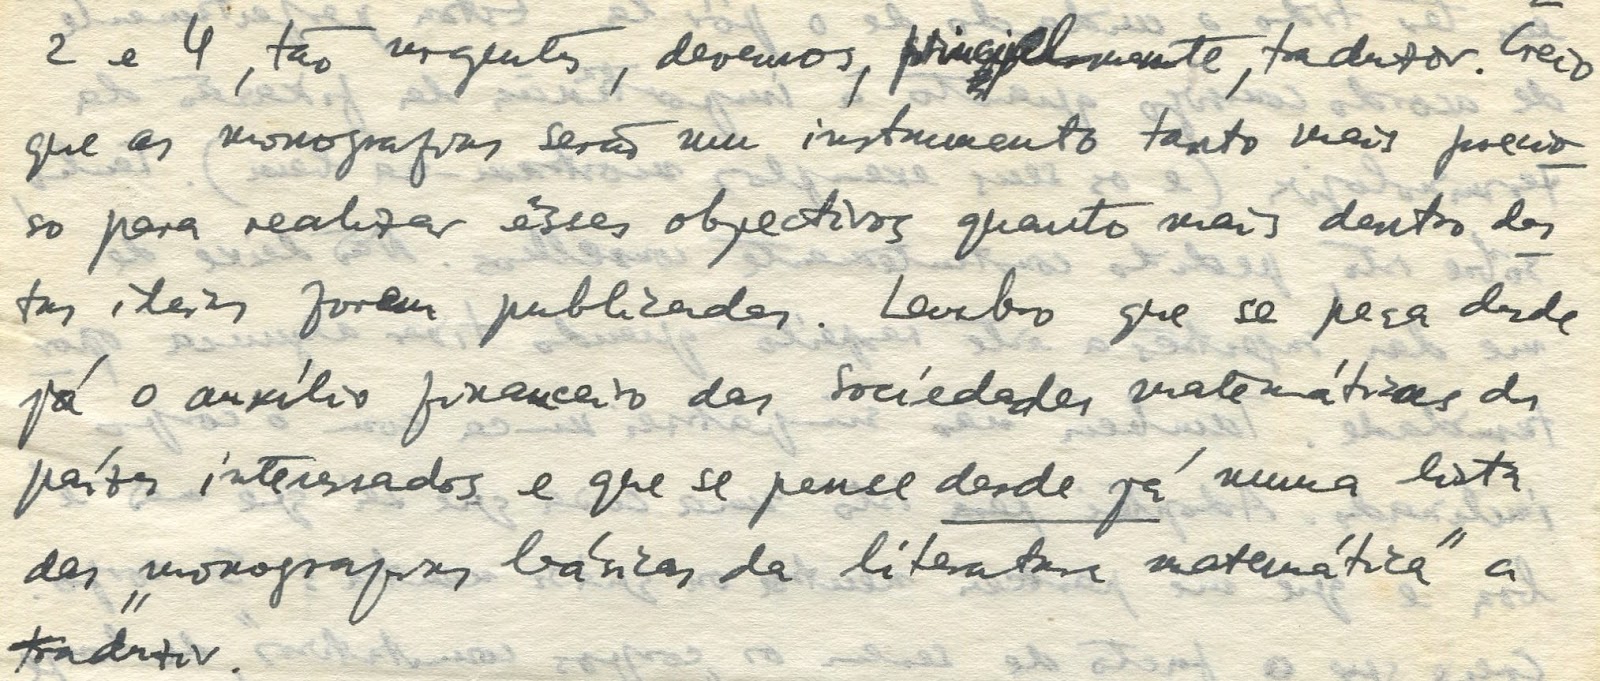 2 e 4, tão urgentes, devemos, principalmente, traduzir. Creio
que as monografias serão um instrumento tanto mais precio
so para realizar êsses objectivos quanto mais dentro des
tas ideias forem publicadas. Lembro que se peça desde
já o auxílio financeiro das Sociedades matemáticas dos
países interessados e que se pense desde já numa lista
das "monografias básicas da literatura matemática" a
traduzir.